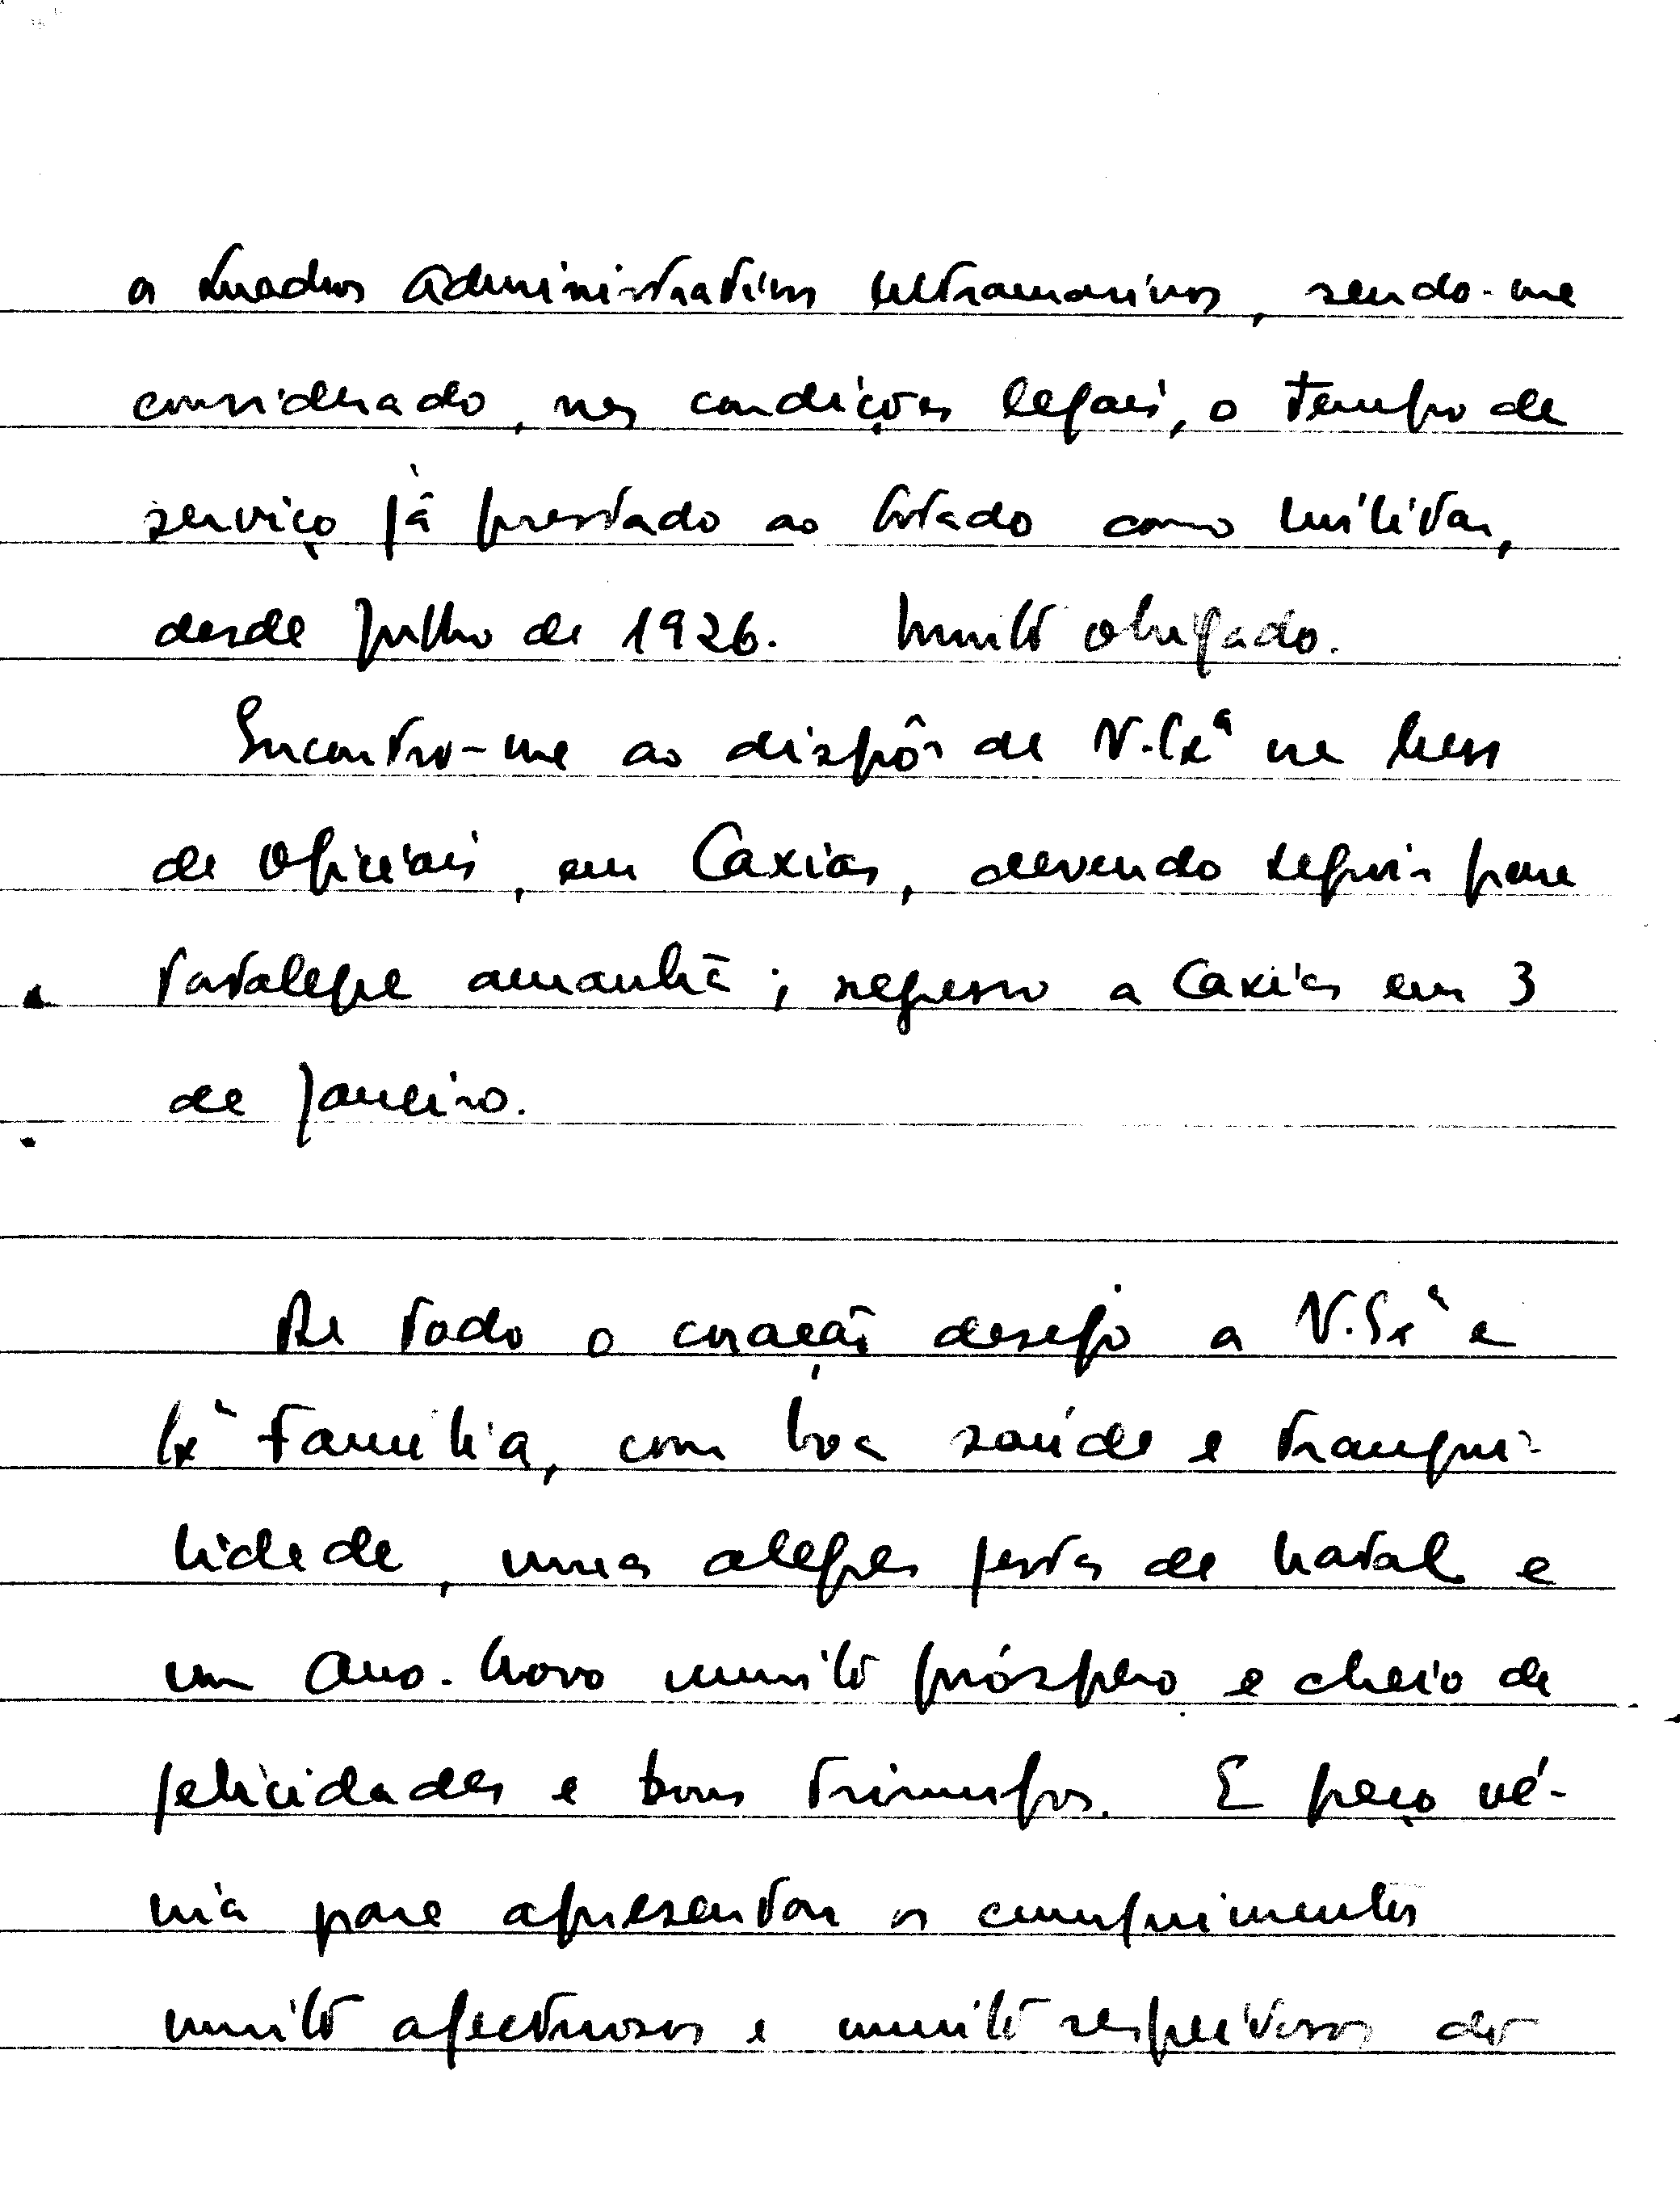 os quadros administrativos ultramarinos, sendo-me
considerado, nas condições legais, o tempo de
serviço já prestado ao Estado como militar,
desde Julho de 1926. Muito obrigado.
Encontro-me ao dispôr de V. Exª na Mess
de Oficiais, em Caxias, devendo seguir para
Portalegre amanhã; regresso a Caxias em 3
de Janeiro.
De todo o coração desejo a V. Exª e
Exª Família, com boa saúde e tranqui-
lidade, umas alegres festas de Natal e
um Ano-Novo muito próspero e cheio de
felicidades e bons triunfos. E peço vé-
nia para apresentar os cumprimentos
muito afectuosos e muito respeitosos do